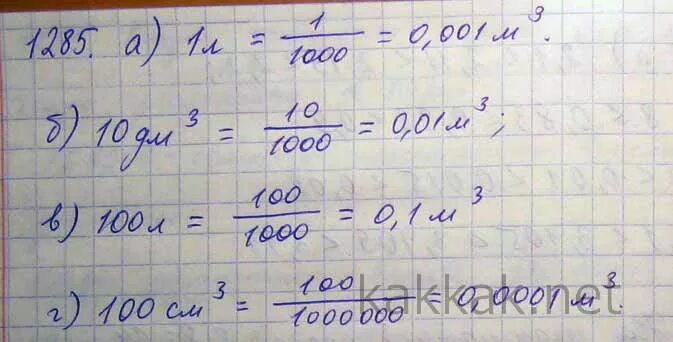 1285. а) 1л = 1/1000 = 0,001 м³.
б) 10 дм³ = 10/1000 = 0,01 м³;
в) 100л = 100/1000 = 0,1 м³
г) 100 см³ = 100/1000000 = 0,0001 м³.
kakkak.net